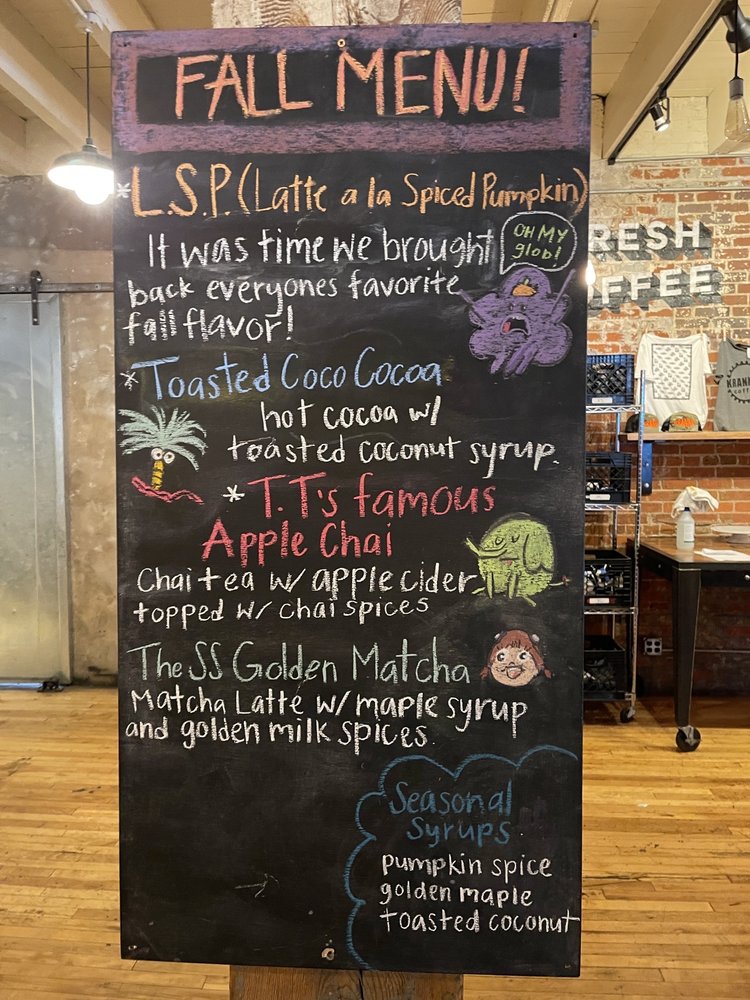 FALL MENU!
*L.S.P. (Latte a la Spiced Pumpkin)
It was time we brought
back everyones favorite
fall flavor!
OH MY
glob!
*Toasted Coco Cocoa
hot cocoa w/
toasted coconut syrup.
*T.T's famous
Apple Chai
Chai tea w/ apple cider
topped w/ chai spices
The SS Golden Matcha
Matcha Latte w/ maple syrup
and golden milk spices.
Seasonal
Syrups
pumpkin spice
golden maple
toasted coconut
RESH
FFEE